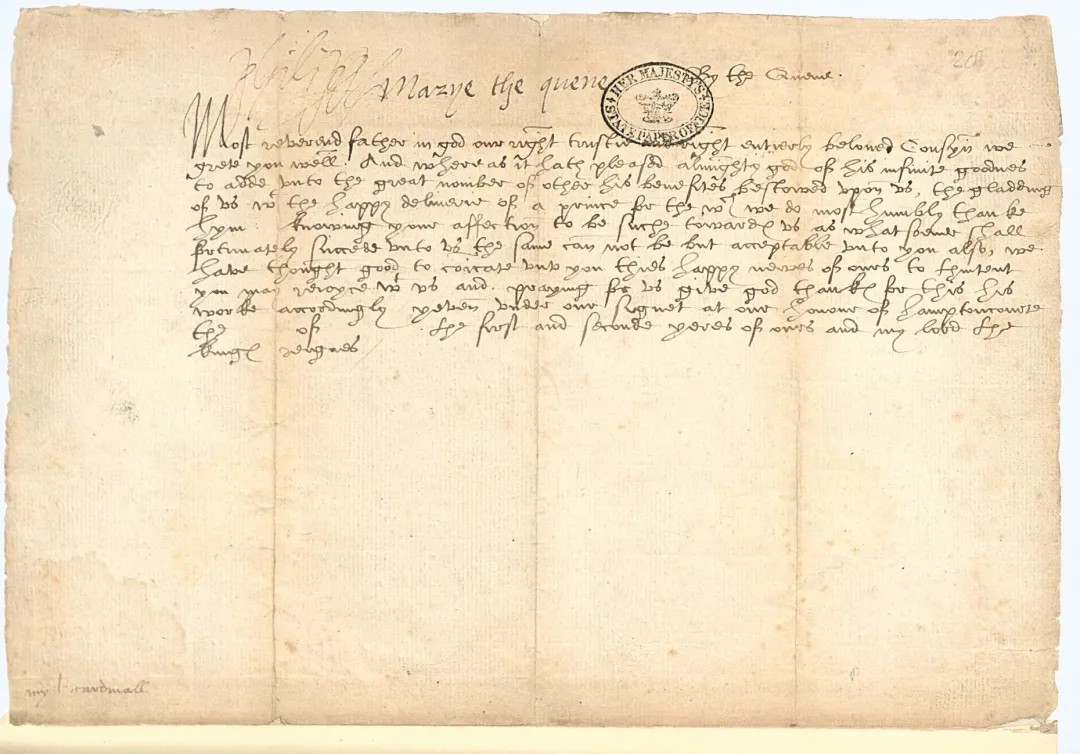 Philipp
Marye the quene
By the Quene.
HER MAJESTY'S STATE PAPER OFFICE
Most reverend father in god our right trustie and right entierly beloued Cousyn we
grete you well. And where as it hath pleased almighty god of his infinite goodnes
to adde vnto the great nomber of other his benefites bestowed vpon vs, the gladding
of vs wt the happy deliuerie of a prince for the wch we do most humbly thanke
hym: knowing your affection to be suche towardes vs as what soeuer shall
fortunately succede vnto vs the same can not be but acceptable vnto you also, we
haue thought good to coicate vnto you thies happy newes of ours to thintent
you may reioyce wt vs and praying for vs give god thankes for this his
worke accordingly yeven vnder our signet at our honour of hamptoncourte
the of the first and seconde yeres of ours and my lord the
kinges reignes
my l cardinall